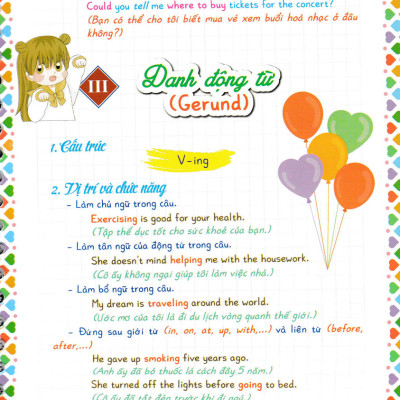 Could you tell me where to buy tickets for the concert?
(Bạn có thể cho tôi biết mua vé xem buổi hoà nhạc ở đâu
không?)
III
Danh động từ
(Gerund)
1. Cấu trúc
V-ing
2. Vị trí và chức năng
- Làm chủ ngữ trong câu.
Exercising is good for your health.
(Tập thể dục tốt cho sức khoẻ của bạn.)
- Làm tân ngữ của động từ trong câu.
She doesn't mind helping me with the housework.
(Cô ấy không ngại giúp tôi làm việc nhà.)
- Làm bổ ngữ trong câu.
My dream is traveling around the world.
(Ước mơ của tôi là đi du lịch vòng quanh thế giới.)
- Đứng sau giới từ (in, on, at, up, with,...) và liên từ (before,
after,...)
He gave up smoking five years ago.
(Anh ấy đã bỏ thuốc lá cách đây 5 năm.)
She turned off the lights before going to bed.
(Cô ấy đã tắt đèn trước khi đi ngủ.)